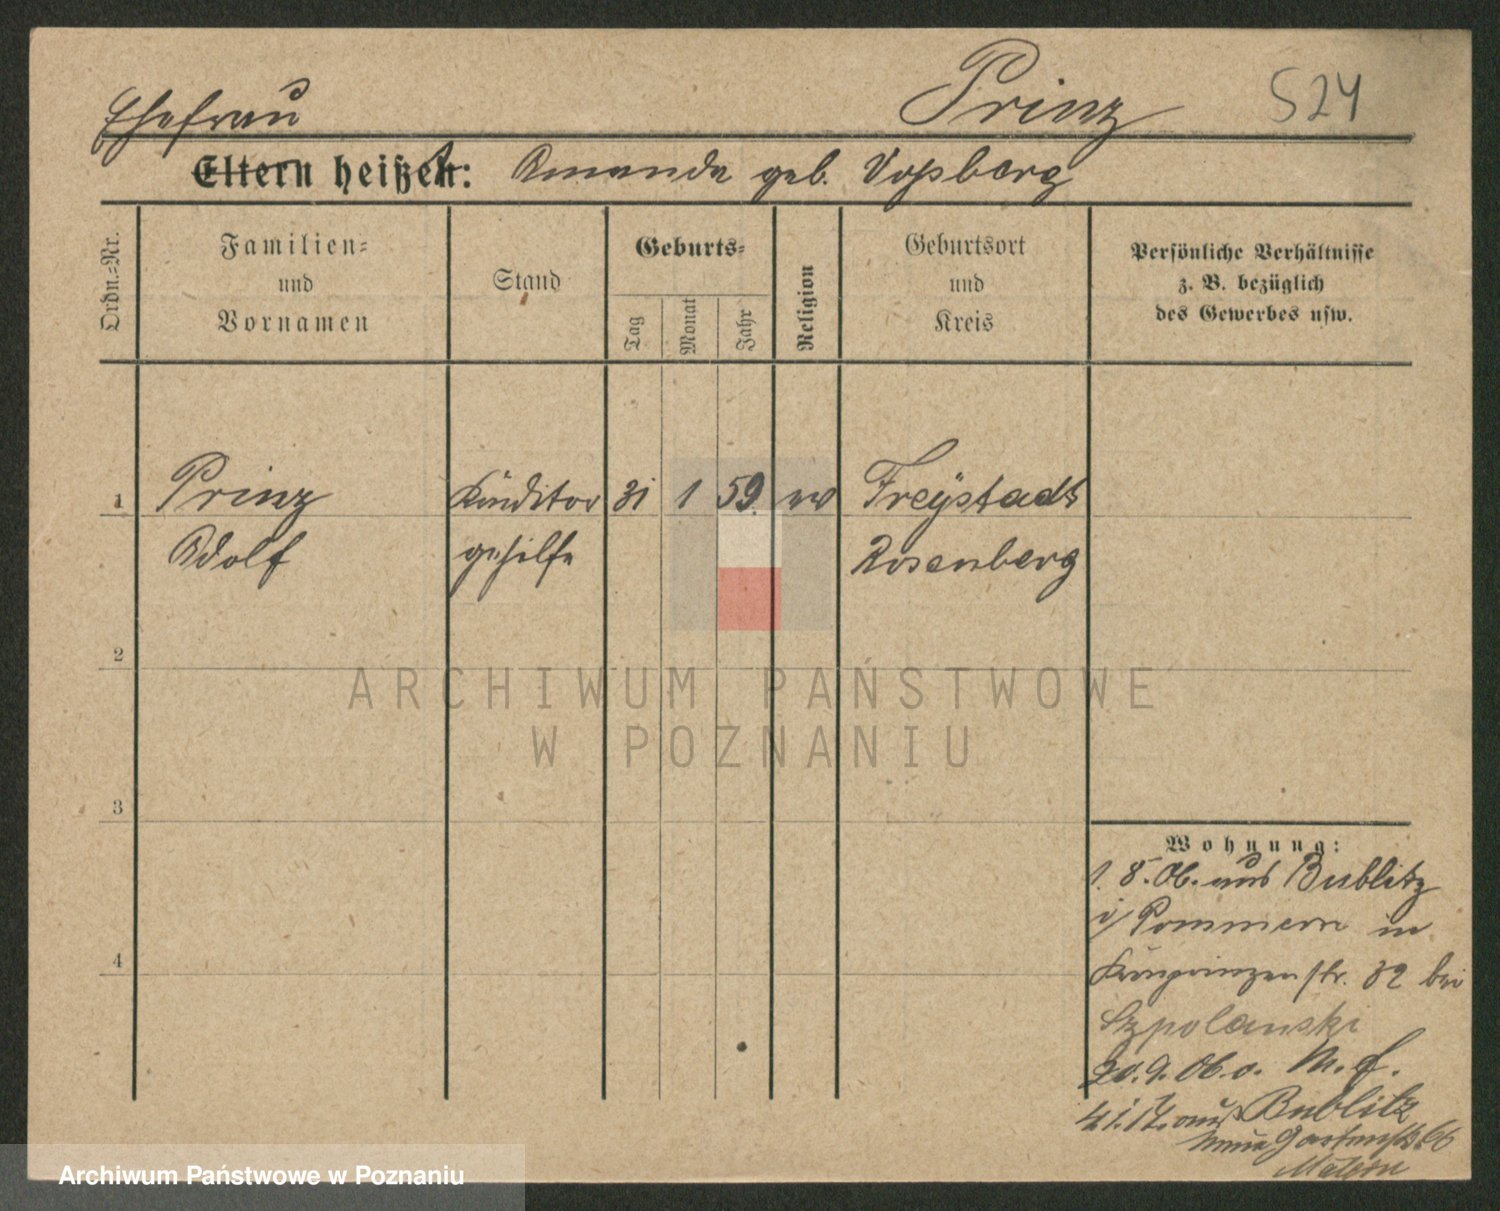 Prinz 524
Ehefrau
Eltern heißen: Amanda geb. Voßberg
Ordn.=Nr.
Familien=
und
Vornamen
Stand
Geburts=
Tag
Monat
Jahr
Religion
Geburtsort
und
Kreis
Persönliche Verhältnisse
z. B. bezüglich
des Gewerbes usw.
1 Prinz Konditor 31 1 59 ev Freystadt
Adolf gehilfe Rosenberg
2
3
4
Wohnung:
1. 8. 06. aus Bublitz
i/ Pommern in
Kronprinzenstr. 32 bei
Szpolanski
20. 9. 06. o. M. f.
aus Bublitz
Gartenstr. 66
ARCHIWUM PAŃSTWOWE
W POZNANIU
Archiwum Państwowe w Poznaniu